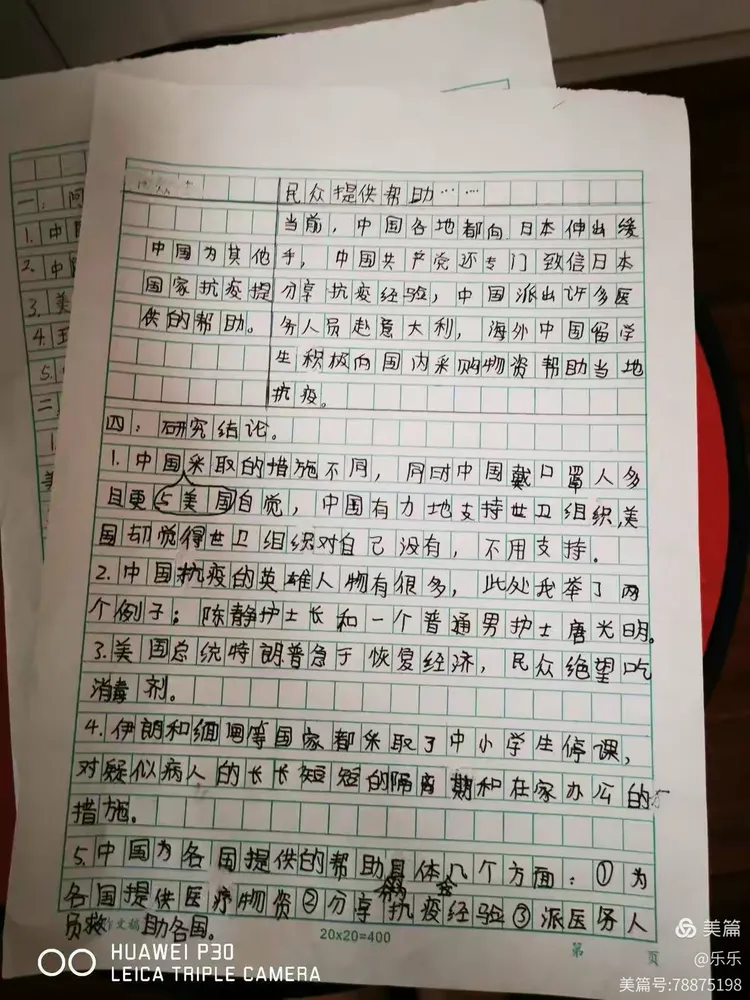 民众提供帮助……
当前，中国各地都向日本伸出缓
中国为其他
手，中国共产党还专门致信日本
国家抗疫提
分享抗疫经验，中国派出许多医
供的帮助。
务人员赴意大利，海外中国留学
生积极向国内采购物资帮助当地
抗疫。
四：研究结论。
1.中国采取的措施不同，同时中国戴口罩人多
且更与美国自觉，中国有力地支持世卫组织，美
国却觉得世卫组织对自己没有，不用支持。
2.中国抗疫的英雄人物有很多，此处我举了两
个例子；陈静护士长和一个普通男护士唐光明。
3.美国总统特朗普急于恢复经济，民众绝望吃
消毒剂。
4.伊朗和缅甸等国家都采取了中小学生停课，
对疑似病人的长长短短的隔离期和在家办公的
措施。
5.中国为各国提供的帮助具体几个方面：①为
各国提供医疗物资②分享抗疫经验③派医务人
员救助各国。
文稿
20x20=400
第 页
一：阿
1.中
2.中
3.美
4.
5.
二
1
美
HUAWEI P30
LEICA TRIPLE CAMERA
美篇
@乐乐
美篇号:78875198